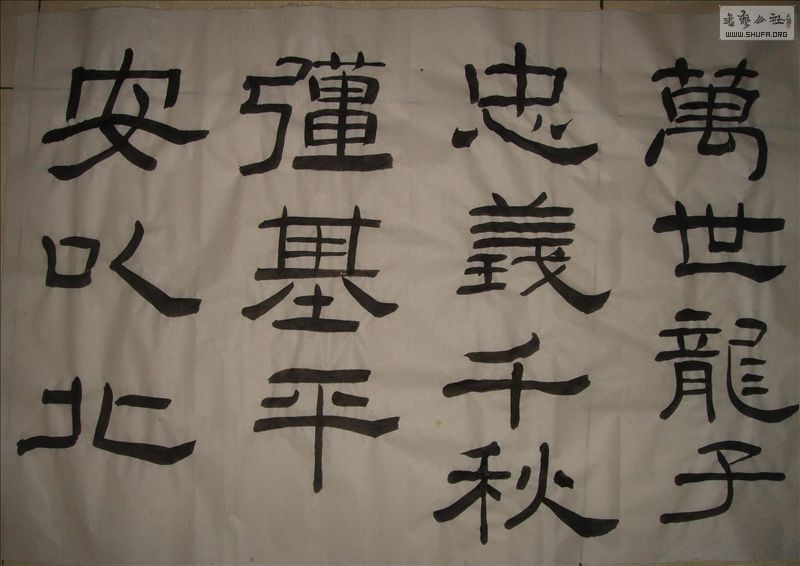 萬世龍子
忠義千秋
基平
安以北
書藝公社
WWW.SHUFA.ORG